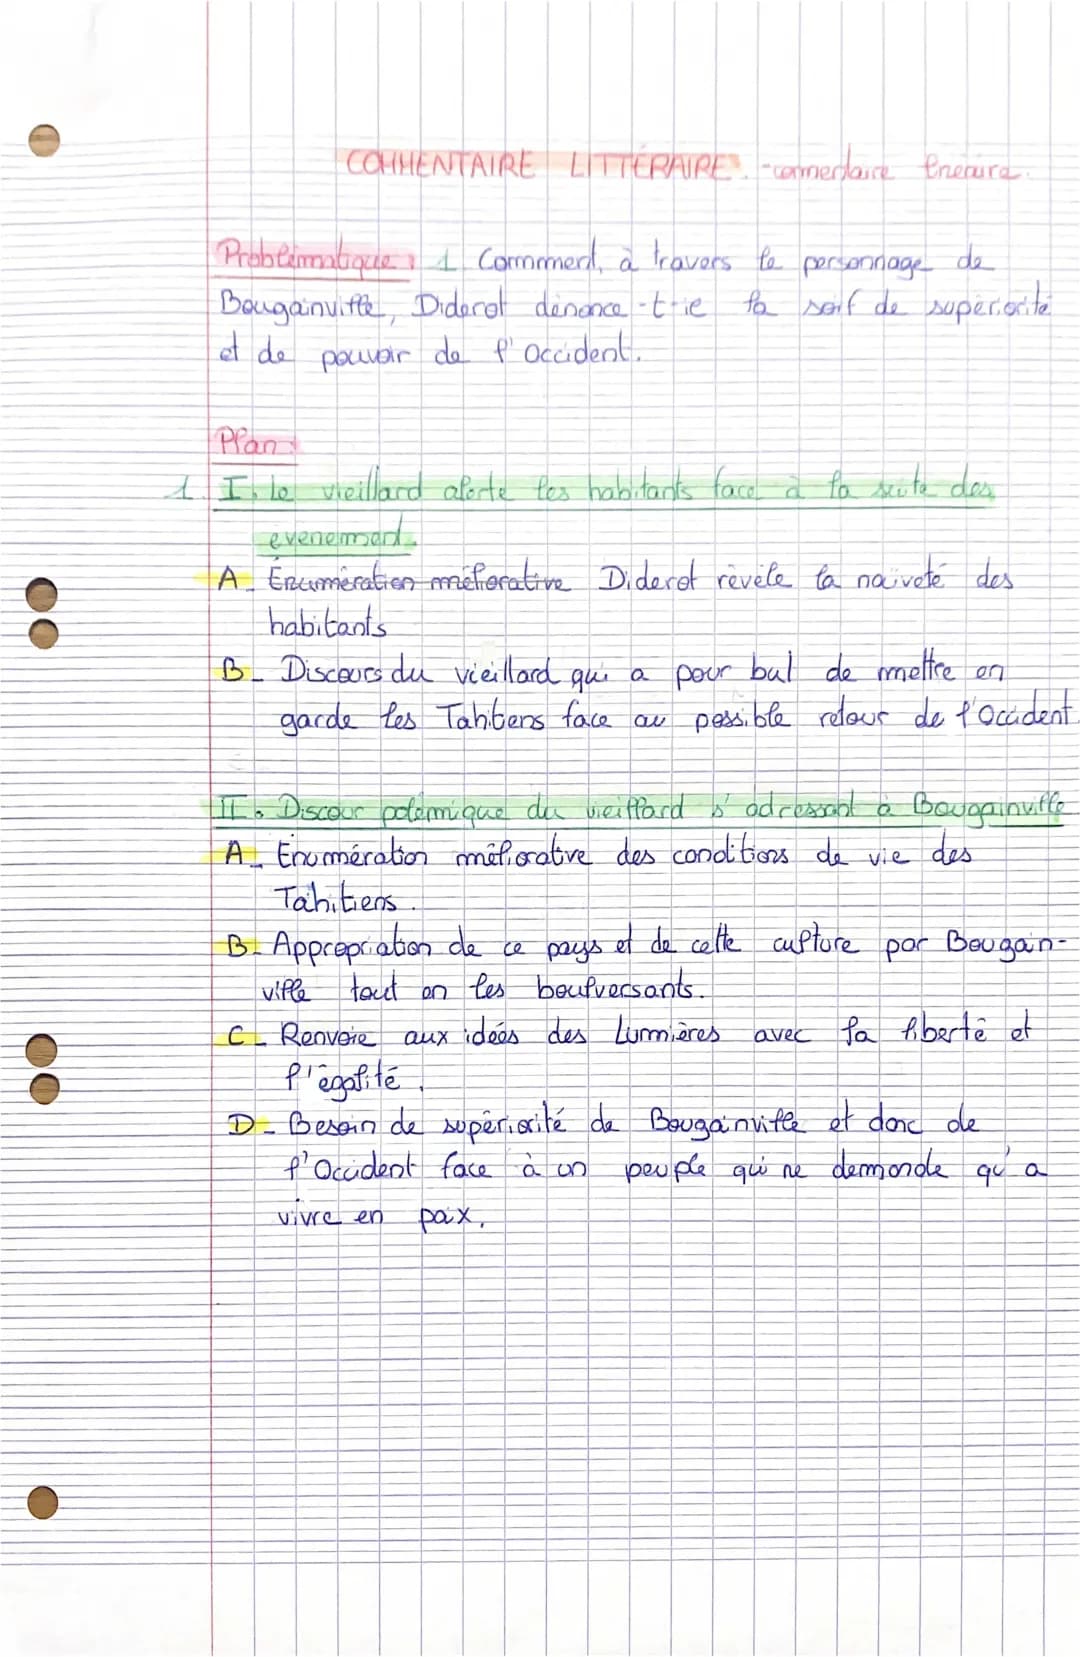 COMMENTAIRE LITTÉRAIRE. - commentaire linéaire.
Problématique : 1. Comment, à travers le personnage de
Bougainville, Diderot dénonce-t-il la soif de supériorité
et de pouvoir de l'Occident.
Plan :
1. I. Le vieillard alerte les habitants face à la suite des
evenement.
A_ Énumération méliorative Diderot révèle la naïveté des
habitants
B_ Discours du vieillard qui a pour but de mettre en
garde les Tahitiens face au possible retour de l'Occident.
II. Discour polémique du vieillard s'adressant à Bougainville
A_ Enumération méliorative des conditions de vie des
Tahitiens.
B_ Appropriation de ce pays et de cette culture par Bougain-
ville tout en les boulversants.
C_ Renvoie aux idées des Lumières avec la liberté et
l'égalité.
D_ Besoin de supériorité de Bougainville et donc de
l'Occident face à un peuple qui ne demande qu'a
vivre en paix.